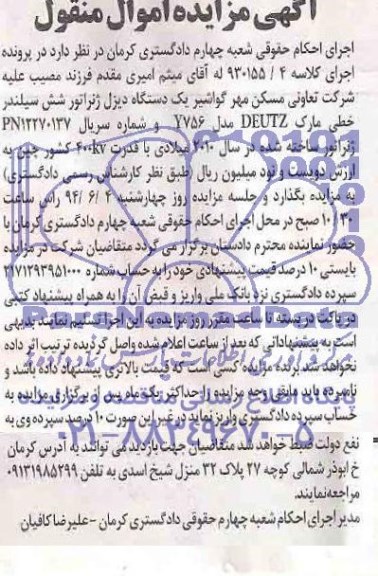 آگهی مزایده اموال منقول
اجرای احکام حقوقی شعبه چهارم دادگستری کرمان در نظر دارد در پرونده
اجرای کلاسه ۴ / ۹۳۰۱۵۵ له آقای میثم امیری مقدم فرزند مصیب علیه
شرکت تعاونی مسکن مهر گواشیر یک دستگاه دیزل ژنراتور شش سیلندر
خطی مارک DEUTZ مدل ۷۵۶Y و شماره سریال PN۱۲۲۷۰۱۳۷
ژنراتور ساخته شده در سال ۲۰۱۰ میلادی با قدرت ۴۰۰kv کشور چین به
ارزش دویست و نود میلیون ریال (طبق نظر کارشناس رسمی دادگستری)
به مزایده بگذارد و جلسه مزایده روز چهارشنبه ۴ /۶ /۹۴ راس ساعت
۱۰/۳۰ صبح در محل اجرای احکام حقوقی شعبه چهارم دادگستری کرمان با
حضور نماینده محترم دادستان برگزار می گردد متقاضیان شرکت در مزایده
بایستی ۱۰ درصد قیمت پیشنهادی خود را به حساب شماره ۲۱۷۱۲۹۳۹۵۱۰۰۰
سپرده دادگستری نزد بانک ملی واریز و قبض آن را به همراه پیشنهاد کتبی
در پاکت در بسته تا ساعت مقرر روز مزایده به این اجرا تسلیم نمایند بدیهی
است به پیشنهاداتی که بعد از ساعت اعلام شده واصل گردیده ترتیب اثر داده
نخواهد شد برنده مزایده کسی است که قیمت بالاتری پیشنهاد داده باشد و
نامبرده باید مابقی وجه مزایده را حداکثر یک ماه پس از برگزاری مزایده به
حساب سپرده دادگستری واریز نماید در غیر این صورت ۱۰ درصد سپرده وی به
نفع دولت ضبط خواهد شد متقاضیان جهت بازدید می توانند به آدرس کرمان
خ ابوذر شمالی کوچه ۲۷ پلاک ۳۲ منزل شیخ اسدی به تلفن ۰۹۱۳۱۹۸۵۲۹۹
مراجعه نمایند.
مدیر اجرای احکام شعبه چهارم حقوقی دادگستری کرمان - علیرضا کافیان
ParsNamadData
۰۲۱-۸۸۳۴۹۶۷۰-۵